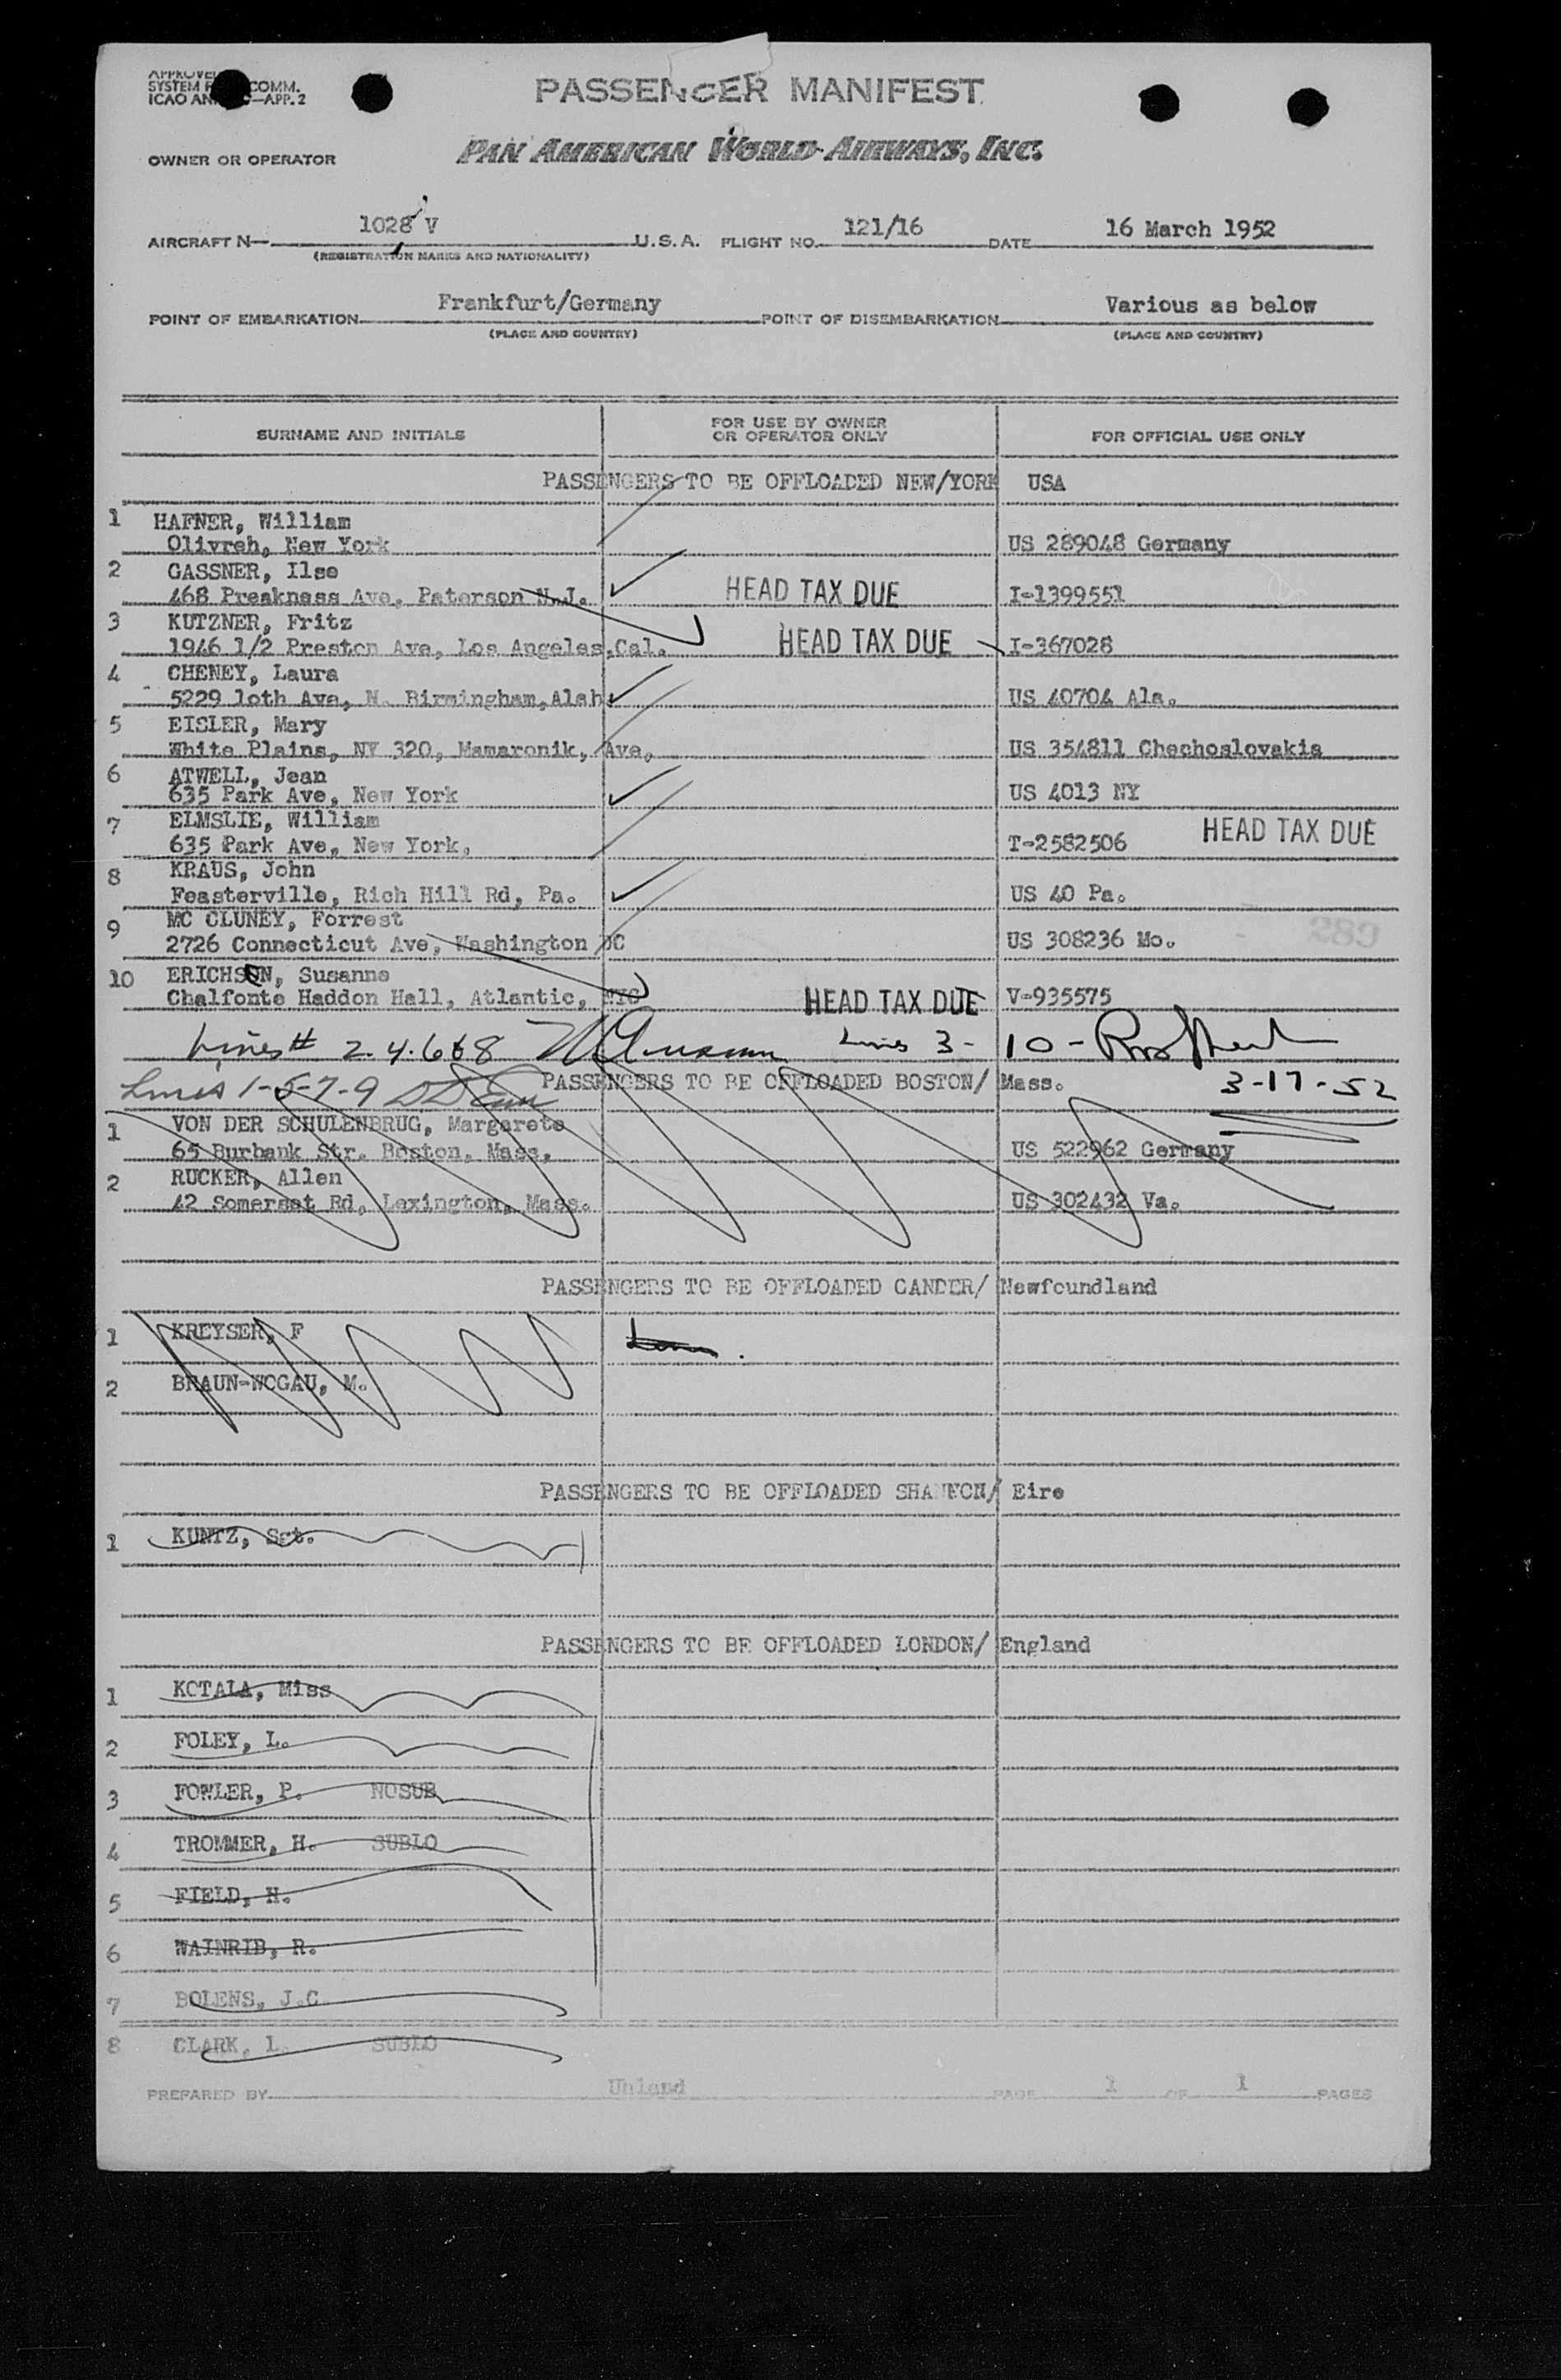 APPROVED
SYSTEM COMM.
ICAO —APP. 2
PASSENGER MANIFEST
OWNER OR OPERATOR PAN AMERICAN WORLD AIRWAYS, INC.
AIRCRAFT N— 1028 V U.S.A. FLIGHT NO. 121/16 DATE 16 March 1952
(REGISTRATION MARKS AND NATIONALITY)
POINT OF EMBARKATION Frankfurt/Germany POINT OF DISEMBARKATION Various as below
(PLACE AND COUNTRY) (PLACE AND COUNTRY)
SURNAME AND INITIALS FOR USE BY OWNER OR OPERATOR ONLY FOR OFFICIAL USE ONLY
PASSENGERS TO BE OFFLOADED NEW/YORK USA
1 HAFNER, William
Olivreh, New York US 289048 Germany
2 GASSNER, Ilse
468 Preakness Ave, Paterson N.J. HEAD TAX DUE I-1399551
3 KUTZNER, Fritz
1946 1/2 Preston Ave, Los Angeles,Cal. HEAD TAX DUE I-367028
4 CHENEY, Laura
5229 10th Ave, N. Birmingham,Alab US 40704 Ala.
5 EISLER, Mary
White Plains, NY 320, Mamaronik, Ave, US 354811 Chechoslovakia
6 ATWELL, Jean
635 Park Ave, New York US 4013 NY
7 ELMSLIE, William
635 Park Ave, New York, T-2582506 HEAD TAX DUE
8 KRAUS, John
Feasterville, Rich Hill Rd, Pa. US 40 Pa.
9 MC CLUNEY, Forrest
2726 Connecticut Ave, Washington DC US 308236 Mo.
10 ERICHSEN, Susanne
Chalfonte Haddon Hall, Atlantic, NYC HEAD TAX DUE V-935575
Lines # 2.4.6&8 Lines 3- 10-
Lines 1-5-7-9 PASSENGERS TO BE OFFLOADED BOSTON/ Mass. 3-17-52
1 VON DER SCHULENBRUG, Margarete
65 Burbank Str. Boston, Mass, US 522962 Germany
2 RUCKER, Allen
42 Somerset Rd, Lexington, Mass. US 302432 Va.
PASSENGERS TO BE OFFLOADED GANDER/ Newfoundland
1 KREYSER, F
2 BRAUN-WOGAU, M.
PASSENGERS TO BE OFFLOADED SHANNON/ Eire
1 KUNTZ, Sgt.
PASSENGERS TO BE OFFLOADED LONDON/ England
1 KOTALA, Miss
2 FOLEY, L.
3 FOWLER, P. NOSUB
4 TROMMER, H. SUBLO
5 FIELD, H.
6 WAINRIB, R.
7 BOLENS, J.C.
8 CLARK, L. SUBLO
PREPARED BY Unland PAGE 1 OF 1 PAGES